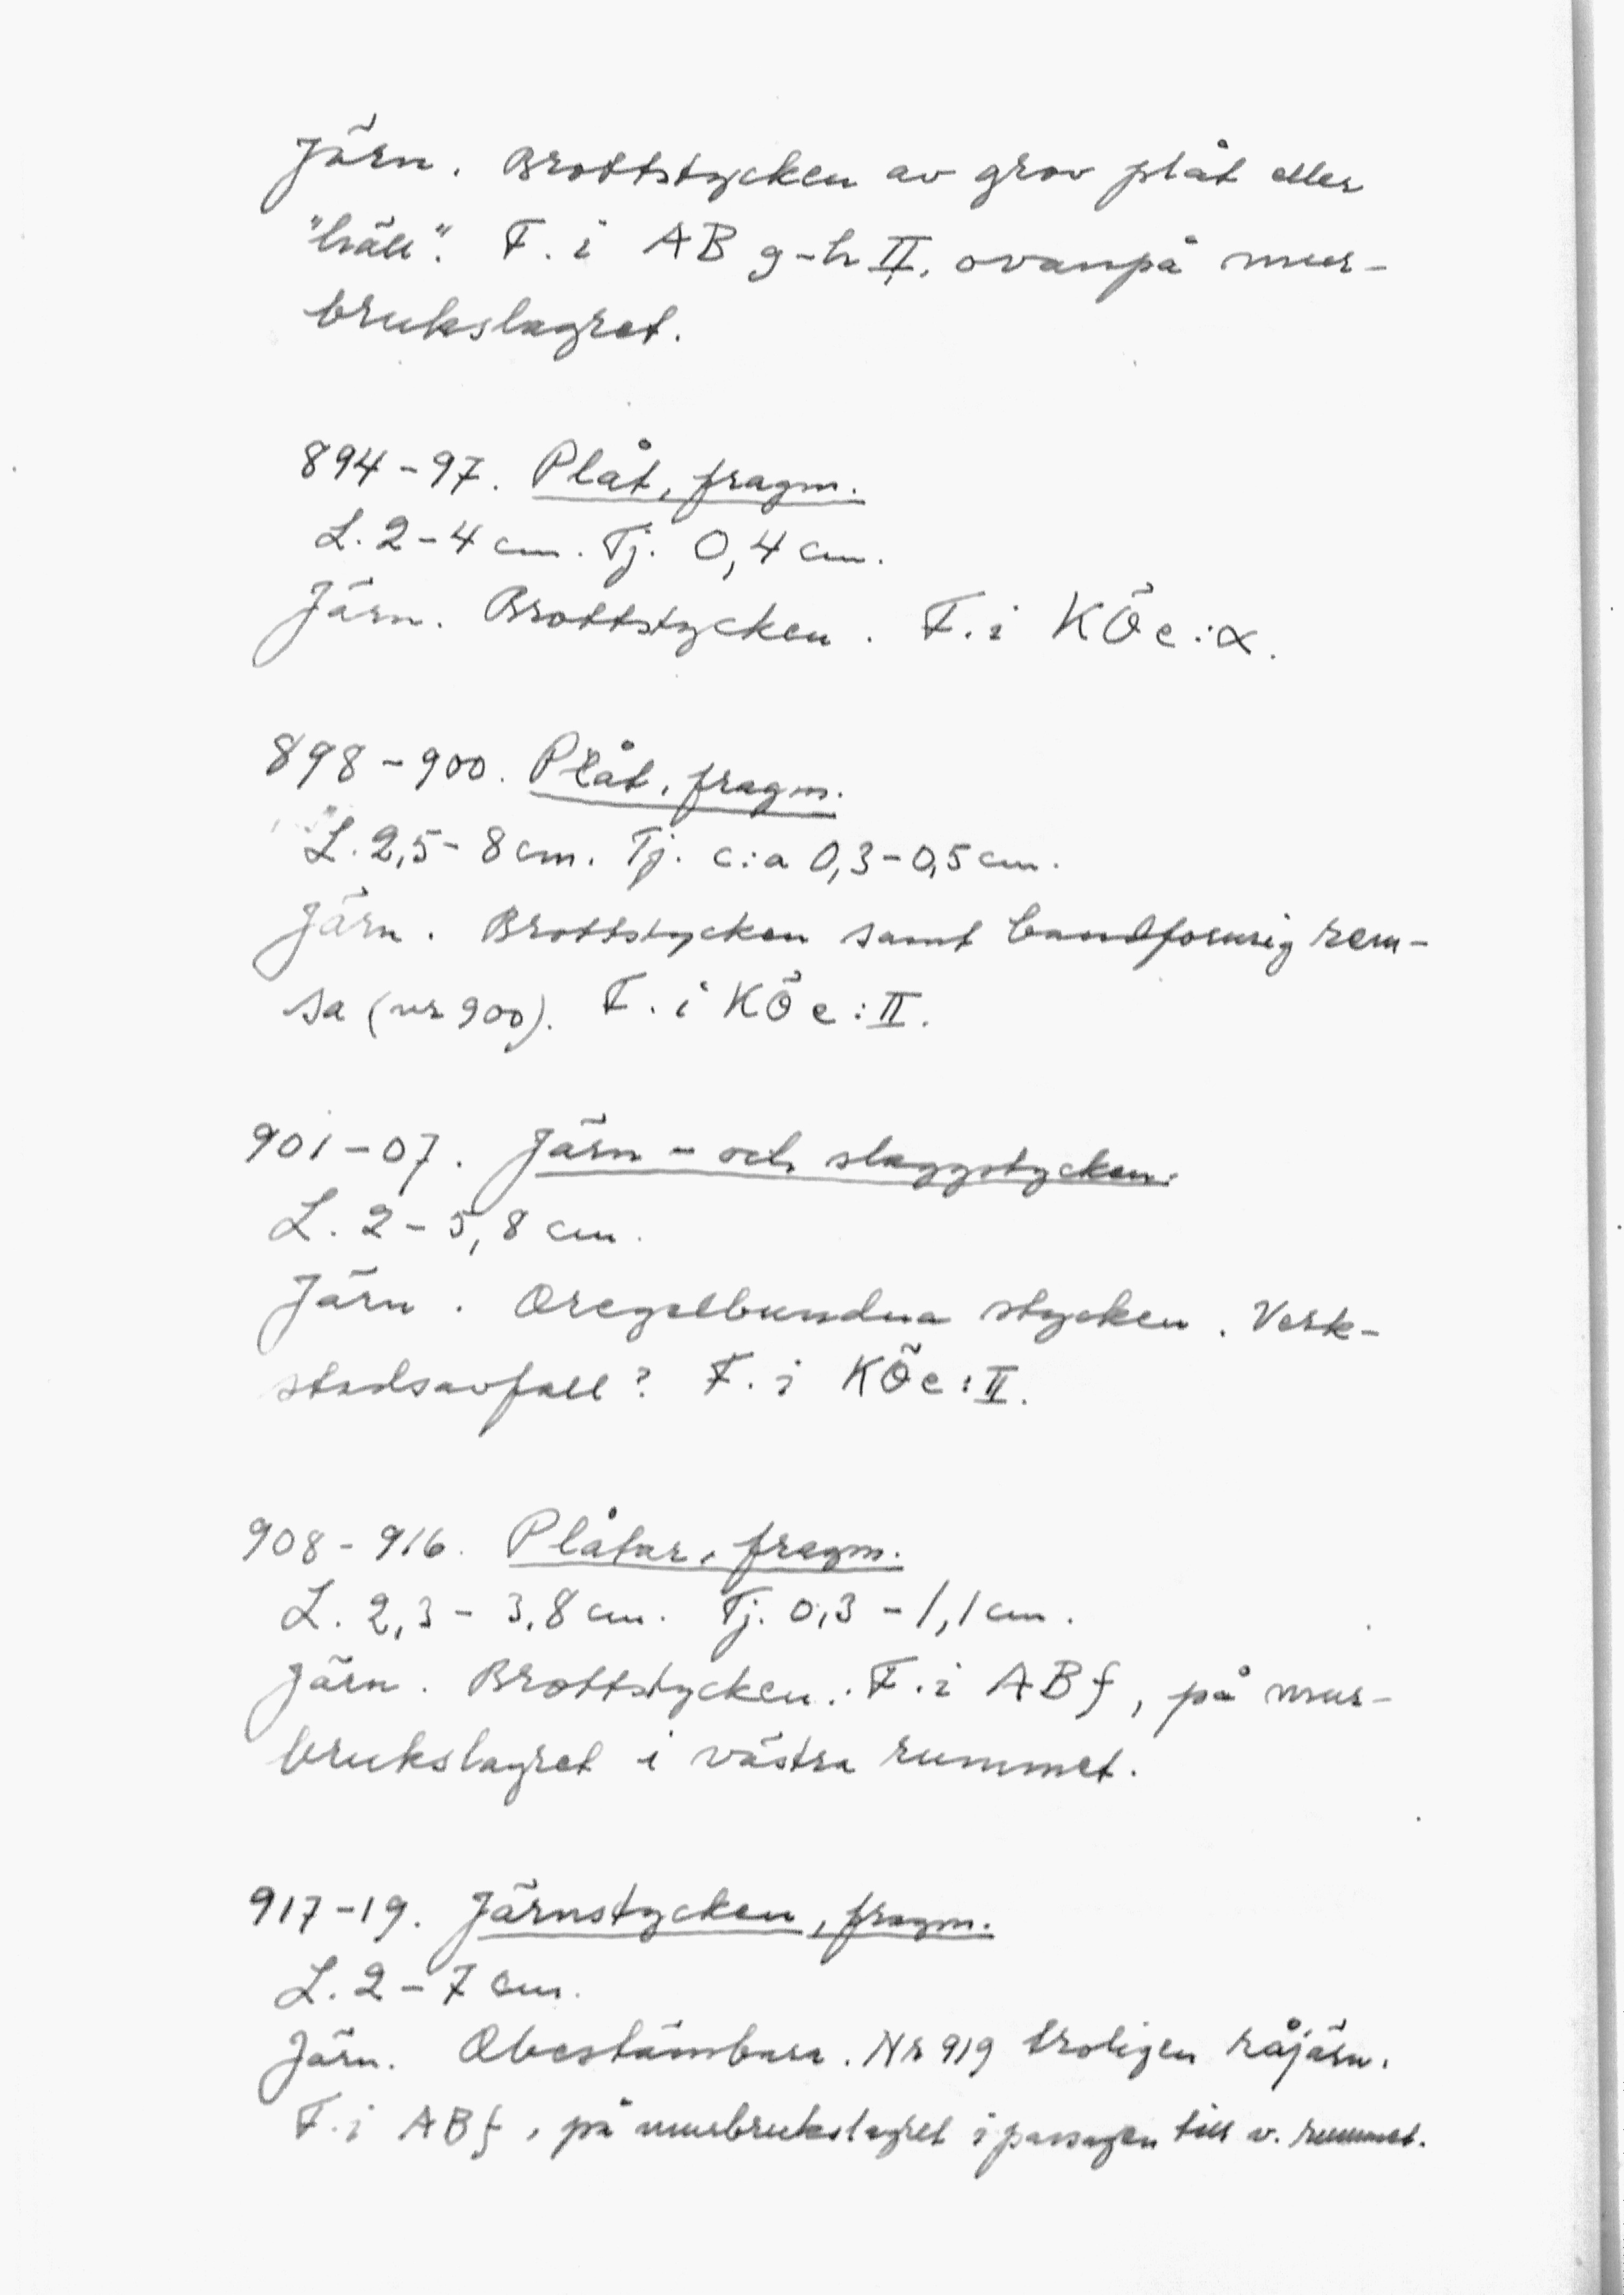 Järn. Brottstycken av grov plåt eller
"häll". F. i AB g-h II, ovanpå mur-
brukslagret.
894-97. Plåt, fragm.
L. 2-4 cm. Tj. 0,4 cm.
Järn. Brottstycken. F. i KÖe:α.
898-900. Plåt, fragm.
L. 2,5-8 cm. Tj. c:a 0,3-0,5 cm.
Järn. Brottstycken samt bandformig rem-
sa (nr 900). F. i KÖe:II.
901-07. Järn- och slaggstycken.
L. 2-5,8 cm.
Järn. Oregelbundna stycken. Verk-
stadsavfall? F. i KÖe:II.
908-916. Plåtar, fragm.
L. 2,3-3,8 cm. Tj. 0,3-1,1 cm.
Järn. Brottstycken. F. i ABf, på mur-
brukslagret i västra rummet.
917-19. Järnstycken, fragm.
L. 2-7 cm.
Järn. Obestämbara. Nr 919 troligen råjärn.
F. i ABf, på murbrukslagret i passagen till v. rummet.